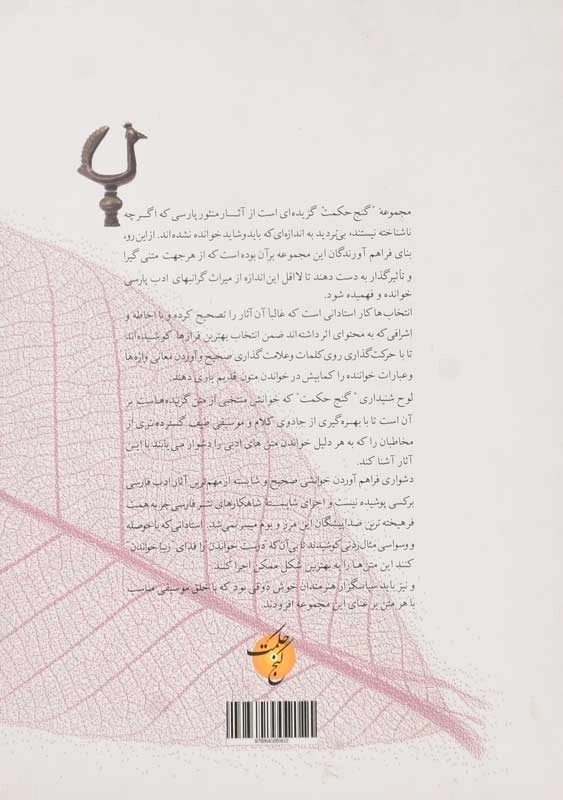 مجموعهٔ "گنج حکمت" گزیده‌ای است از آثار منثور پارسی که اگرچه
ناشناخته نیستند، بی‌تردید به اندازه‌ای که باید و شاید خوانده نشده‌اند. از این رو،
بنای فراهم آورندگان این مجموعه برآن بوده است که از هر جهت متنی گیرا
و تأثیرگذار به دست دهند تا لااقل این اندازه از میراث گرانبهای ادب پارسی
خوانده و فهمیده شود.
انتخاب‌ها کار استادانی است که غالباً آن آثار را تصحیح کرده و با احاطه و
اشرافی که به محتوای اثر داشته‌اند ضمن انتخاب بهترین فرازها کوشیده‌اند
تا با حرکت‌گذاری روی کلمات و علامت‌گذاری صحیح و آوردن معانی واژه‌ها
و عبارات خواننده را کمابیش در خواندن متون قدیم یاری دهند.
لوح شنیداری "گنج حکمت" که خوانشی منتخبی از متن گزیده‌هاست بر
آن است تا با بهره‌گیری از جادوی کلام و موسیقی طیف گسترده‌تری از
مخاطبان را که به هر دلیل خواندن متن های ادبی را دشوار می‌یابند با این
آثار آشنا کند.
دشواری فراهم آوردن خوانشی صحیح و شایسته از مهم‌ترین آثار ادب فارسی
برکسی پوشیده نیست و اجرای شایستهٔ شاهکارهای نثر فارسی جز به همت
فرهیخته ترین صداپیشگان این مرز و بوم میسر نمی‌شد. استادانی که با حوصله
و وسواسی مثال‌زدنی کوشیدند تا بی‌آن‌که "درست خواندن" را فدای "زیبا خواندن"
کنند این متن‌ها را به بهترین شکل ممکن اجرا کنند.
و نیز باید سپاسگزار هنرمندان خوش ذوقی بود که با خلق موسیقی مناسب
با هر متن بر غنای این مجموعه افزودند.
گنج حکمت